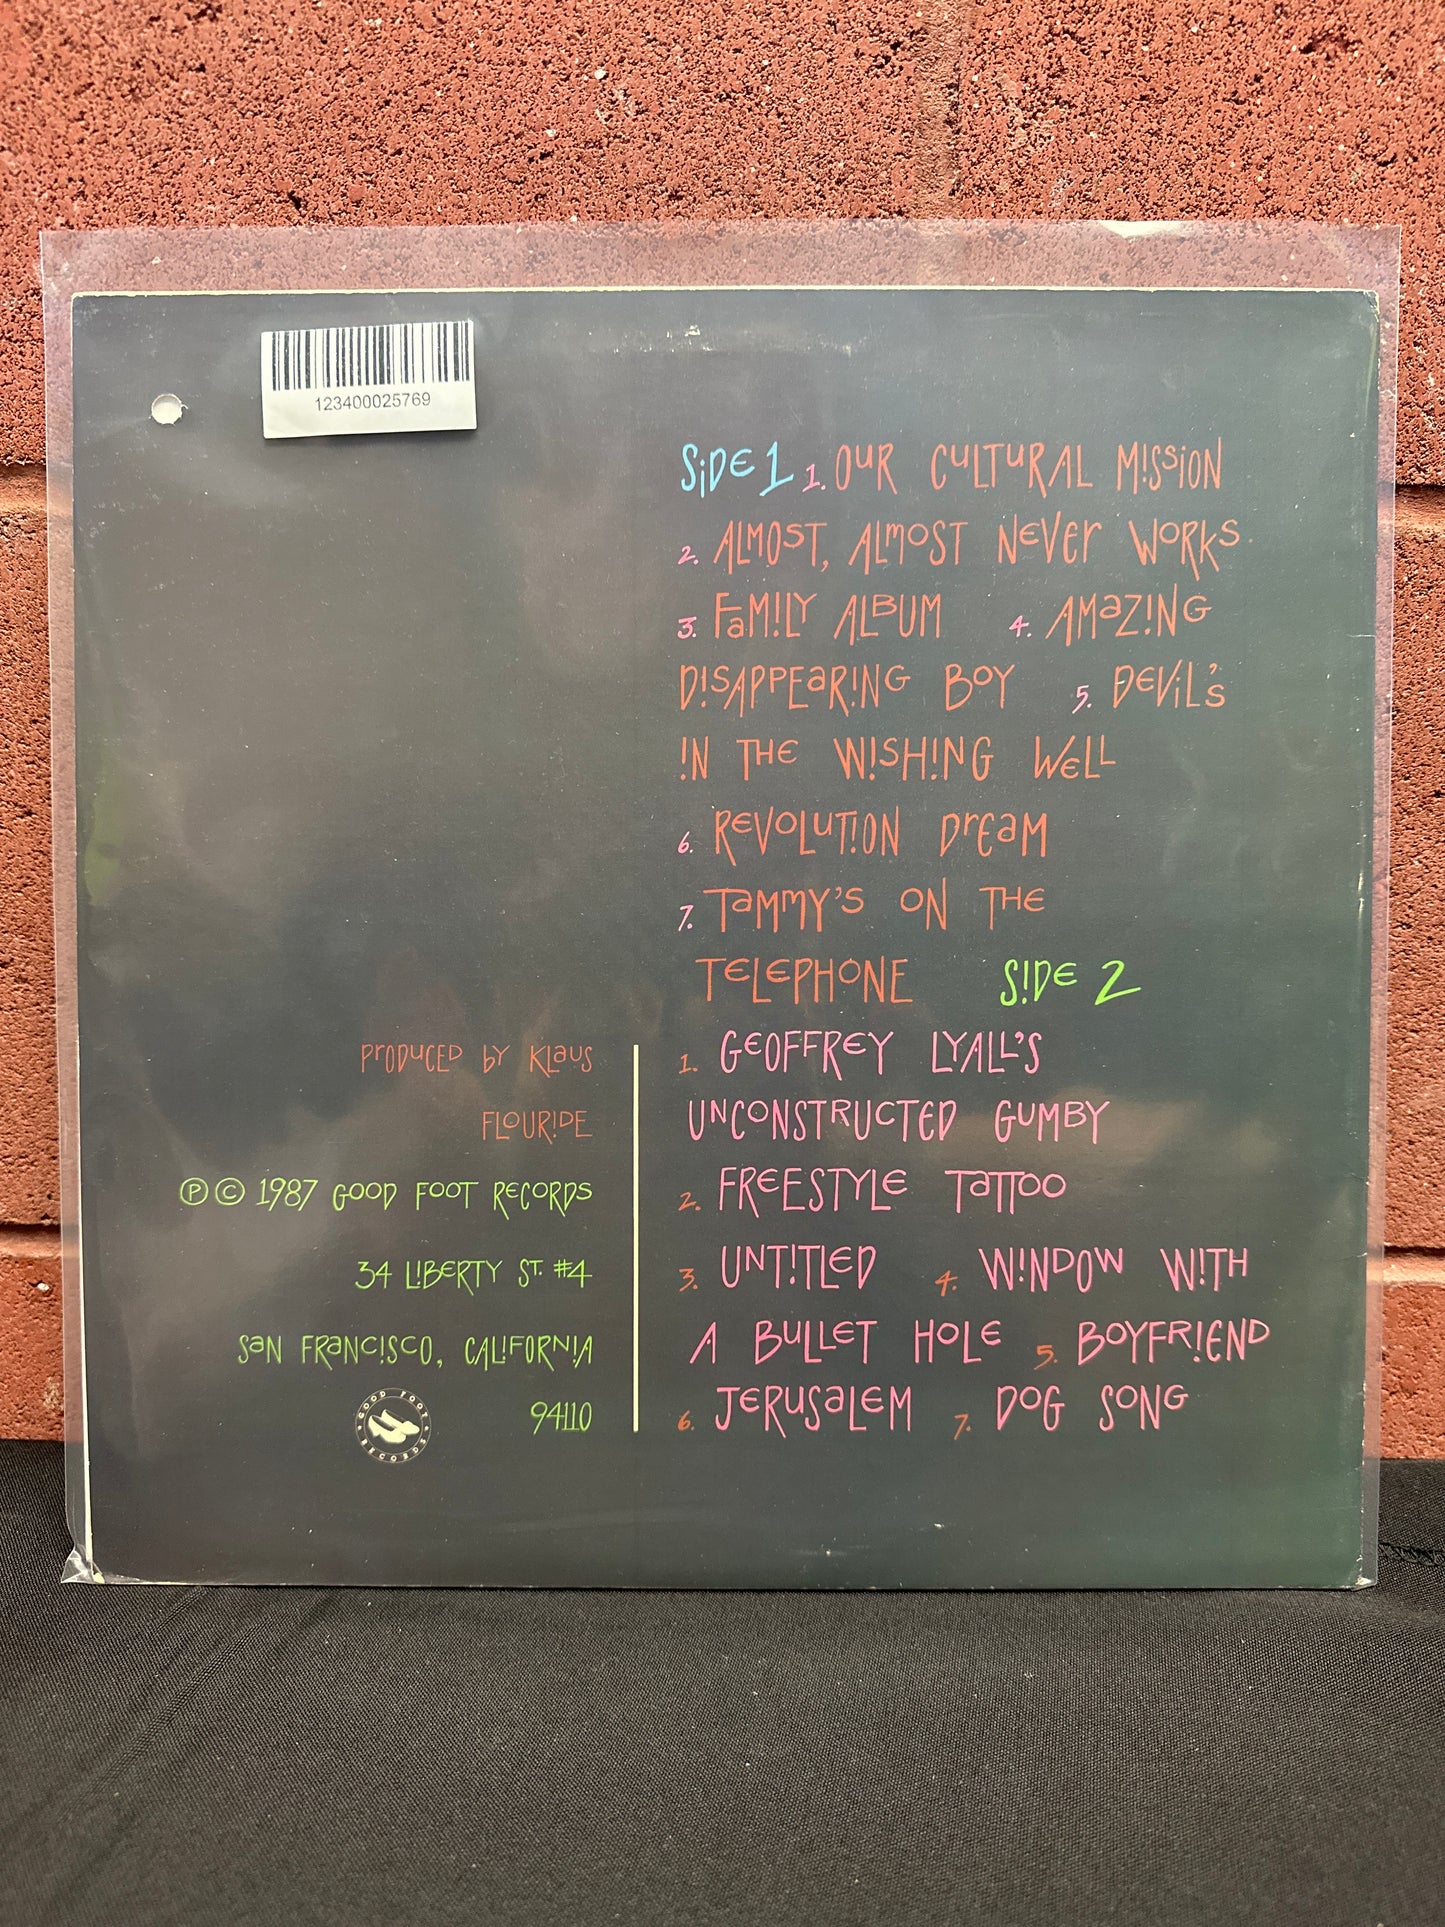 123400025769
SIDE 1 1. OUR CULTURAL MISSION
2. ALMOST, ALMOST NEVER WORKS
3. FAMILY ALBUM 4. AMAZING
DISAPPEARING BOY 5. DEVIL'S
IN THE WISHING WELL
6. REVOLUTION DREAM
7. TAMMY'S ON THE
TELEPHONE SIDE 2
1. GEOFFREY LYALL'S
UNCONSTRUCTED GUMBY
2. FREESTYLE TATTOO
3. UNTITLED 4. WINDOW WITH
A BULLET HOLE 5. BOYFRIEND
6. JERUSALEM 7. DOG SONG
PRODUCED BY KLAUS
FLOURIDE
Ⓟ © 1987 GOOD FOOT RECORDS
34 LIBERTY ST. #4
SAN FRANCISCO, CALIFORNIA
94110
GOOD FOOT RECORDS